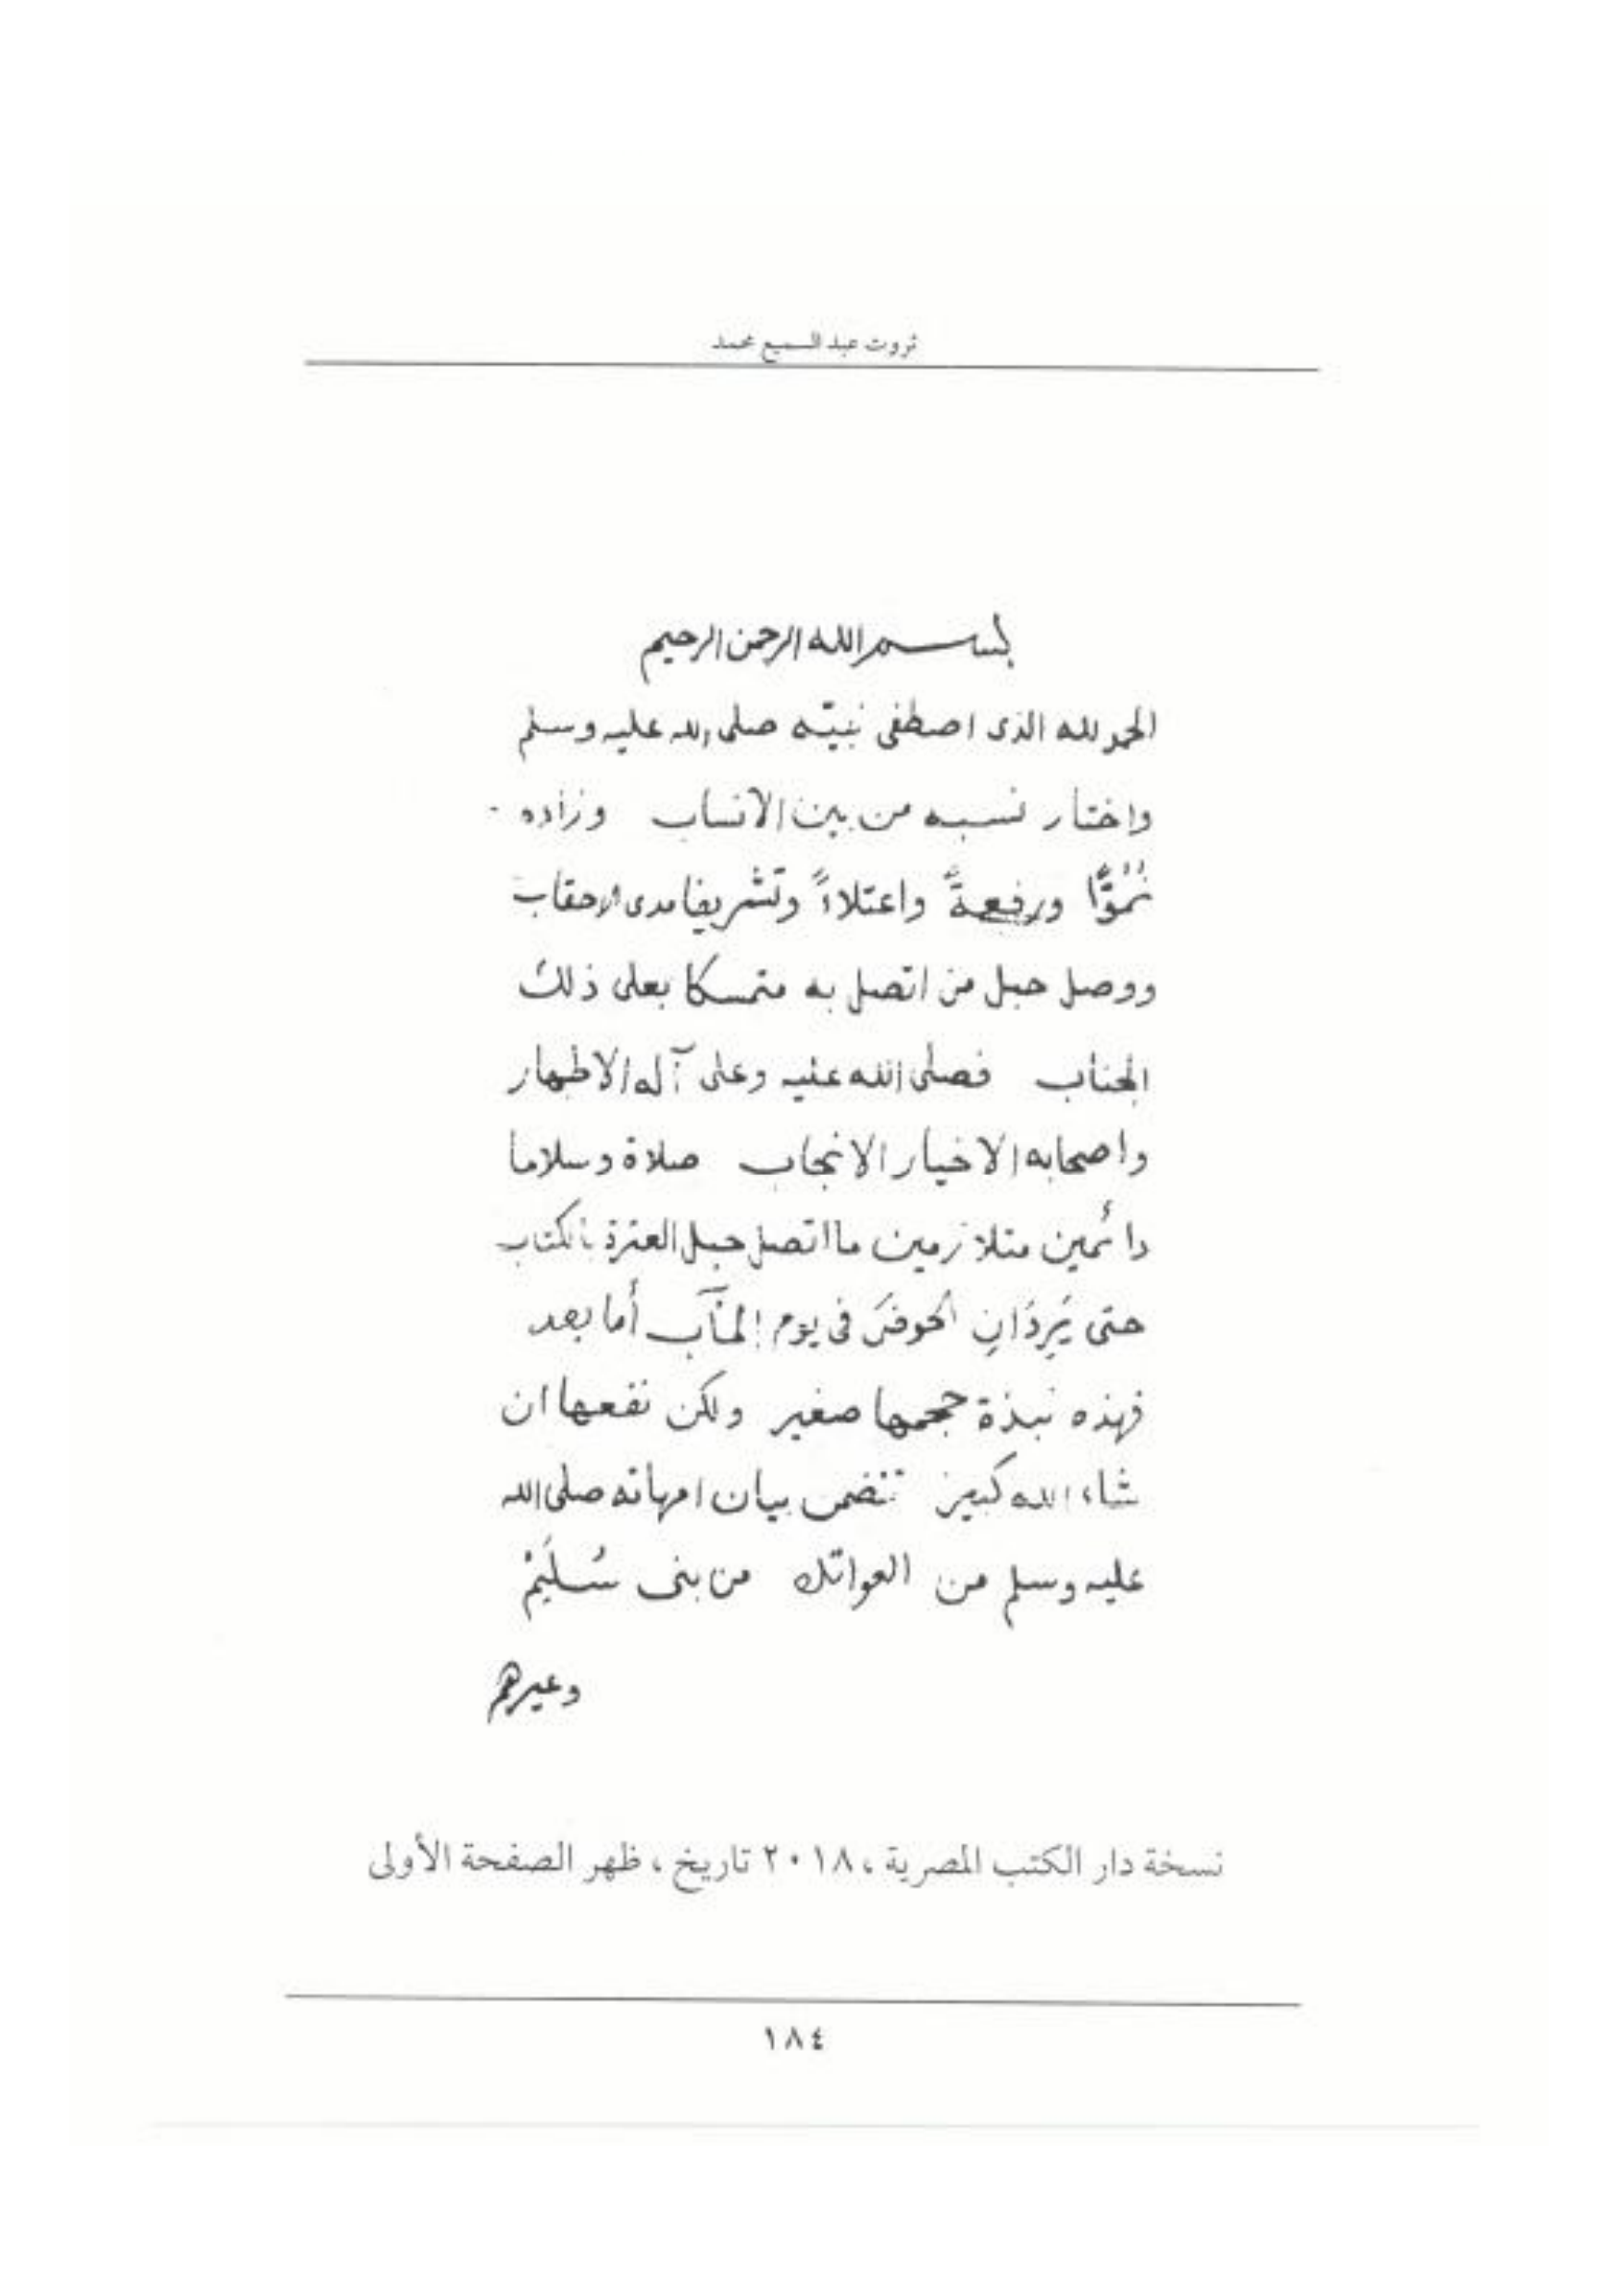 ثروت عبد السميع محمد
بسم الله الرحمن الرحيم
الحمد لله الذى اصطفى نبيّه صلى الله عليه وسلم
واختار نسبه من بين الانساب وزاده
نموًّا ورفعةً واعتلاءً وتشريفا مدى الاحقاب
ووصل حبل من اتصل به متمسكا بعلى ذلك
الجناب فصلى الله عليه وعلى آله الاطهار
واصحابه الاخيار الانجاب صلاة وسلاما
دائمين متلازمين ما اتصل حبل العترة بالكتاب
حتى يَرِدَانِ الحوضَ فى يوم المآب أما بعد
فهذه نبذة حجمها صغير ولكن نفعها ان
شاء الله كبير تتضمن بيان امهاته صلى الله
عليه وسلم من العواتك من بنى سُلَيْمْ
وغيرهم
نسخة دار الكتب المصرية ، ٢٠١٨ تاريخ ، ظهر الصفحة الأولى
١٨٤